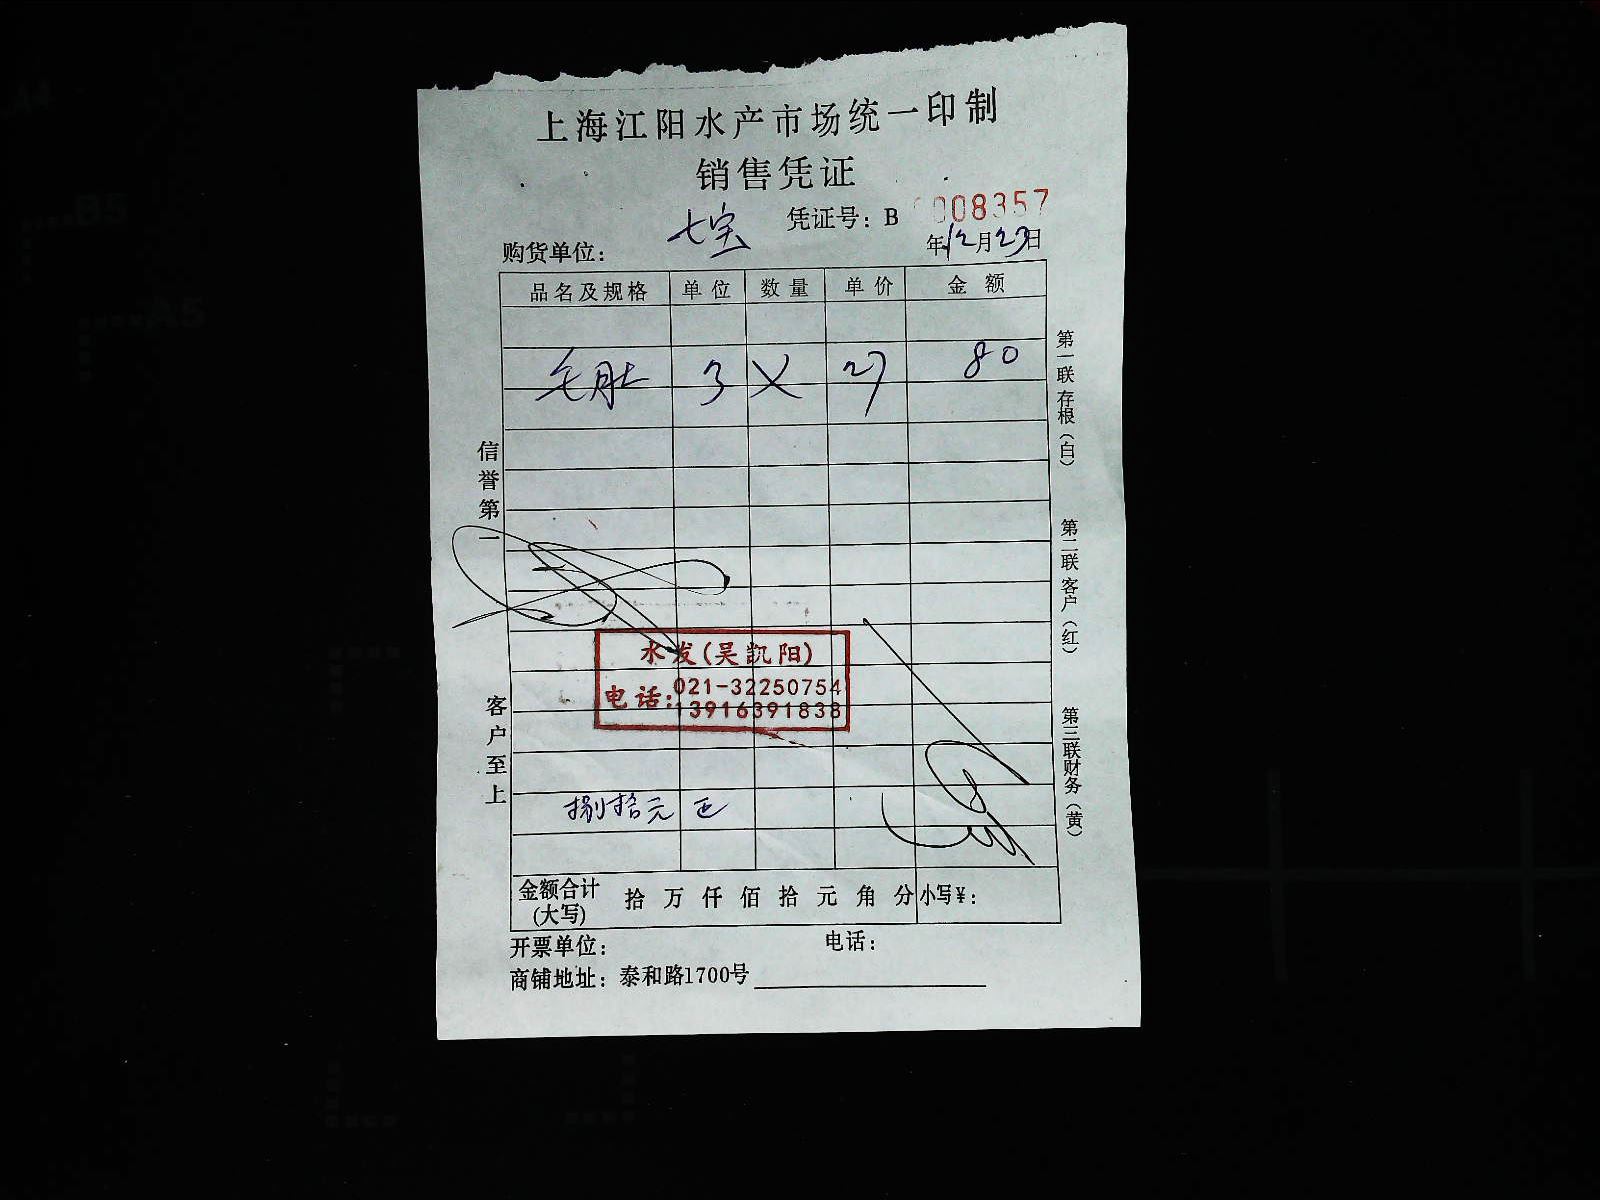 上海江阳水产市场统一印制
销售凭证
凭证号：B 0008357
购货单位： 七宝
年12月23日
品名及规格 单位 数量 单价 金额
毛肚 3 × 27 80
信誉第一
客户至上
第一联存根（白）
第二联客户（红）
第三联财务（黄）
水发(吴凯阳)
电话:021-32250754
13916391838
捌拾元正
金额合计(大写) 拾 万 仟 佰 拾 元 角 分 小写¥:
开票单位： 电话：
商铺地址：泰和路1700号